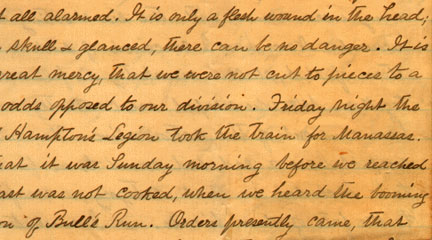 all alarmed. It is only a flesh wound in the head;
skull & glanced, there can be no danger. It is
great mercy, that we were not cut to pieces to a
odds opposed to our division. Friday night the
Hampton's Legion took the train for Manassas.
at it was Sunday morning before we reached
ast was not cooked, when we heard the booming
on of Bull's Run. Orders presently came, that